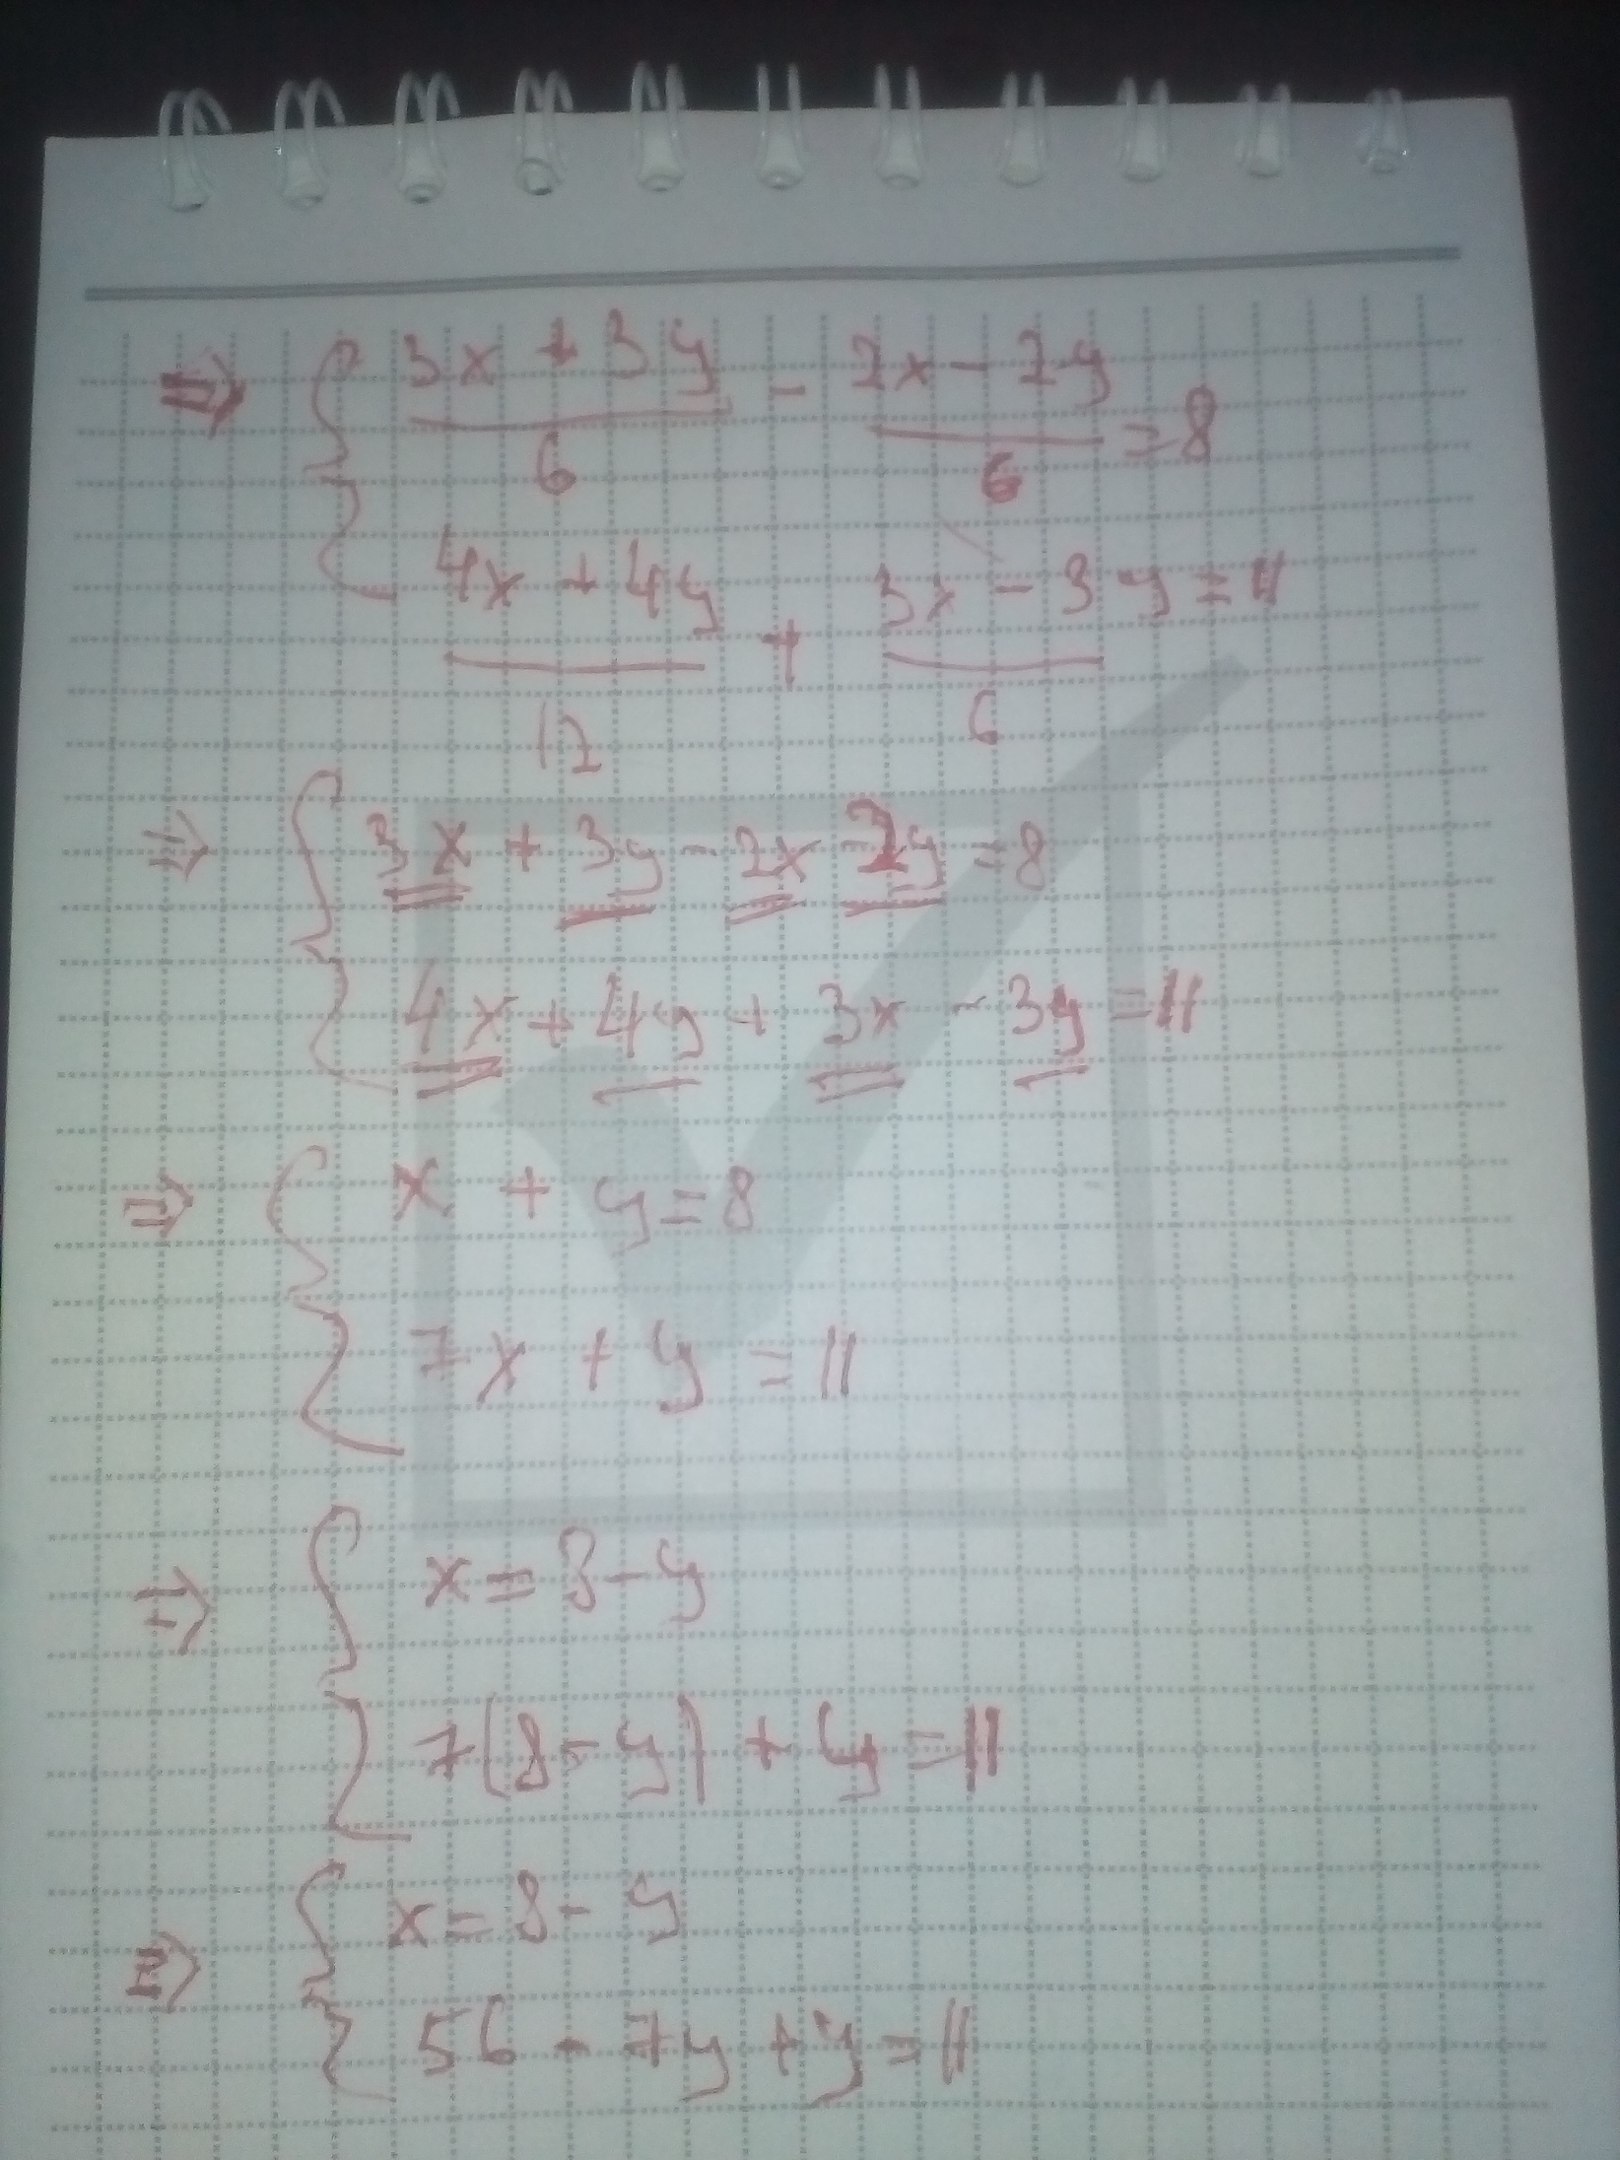 ⇒ { 3x + 3y / 6 - 2x - 2y / 6 = 8
4x + 4y / 12 + 3x - 3y / 6 = 11
⇒ { 3x + 3y - 2x - 2y = 8
4x + 4y + 3x - 3y = 11
⇒ { x + y = 8
7x + y = 11
⇒ { x = 8 - y
7(8 - y) + y = 11
⇒ { x = 8 - y
56 - 7y + y = 11